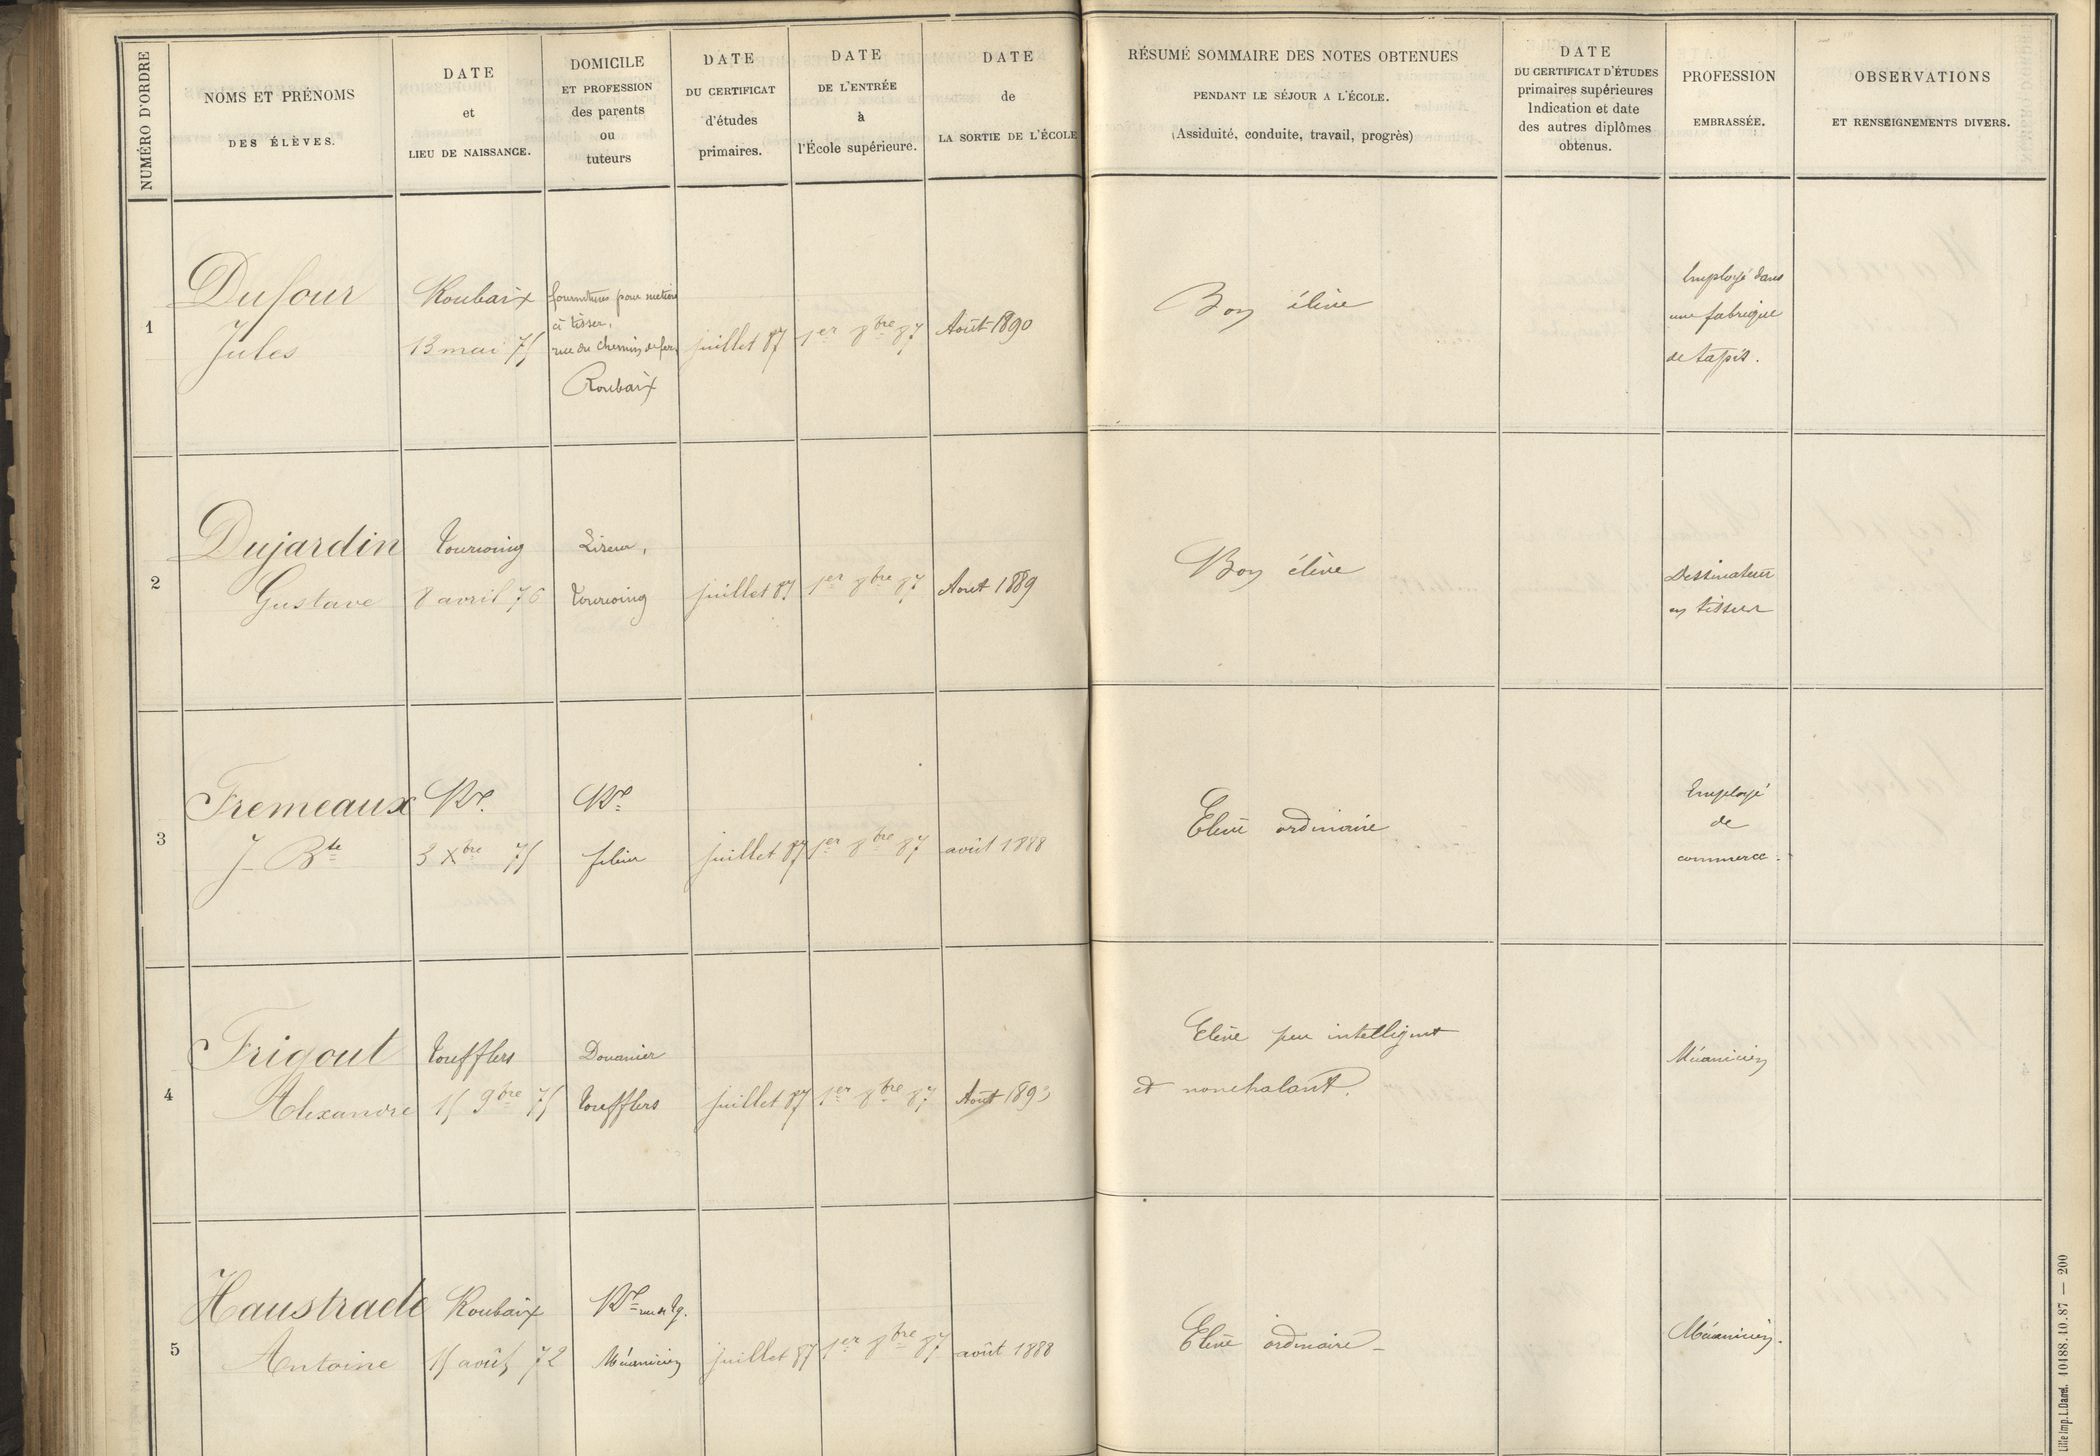 NUMÉRO D'ORDRE
NOMS ET PRÉNOMS
DES ÉLÈVES.
DATE
et
LIEU DE NAISSANCE.
DOMICILE
ET PROFESSION
des parents
ou
tuteurs
DATE
DU CERTIFICAT
d'études
primaires.
DATE
DE L'ENTRÉE
à
l'École supérieure.
DATE
de
LA SORTIE DE L'ÉCOLE
RÉSUMÉ SOMMAIRE DES NOTES OBTENUES
PENDANT LE SÉJOUR A L'ÉCOLE.
(Assiduité, conduite, travail, progrès)
DATE
DU CERTIFICAT D'ÉTUDES
primaires supérieures
Indication et date
des autres diplômes
obtenus.
PROFESSION
EMBRASSÉE.
OBSERVATIONS
ET RENSEIGNEMENTS DIVERS.
1
Dufour
Jules
Roubaix
13 mai 75
fournitures pour métiers
à tisser,
rue du chemin de fer,
Roubaix
juillet 87
1er 8bre 87
Août 1890
Bon élève
Employé dans
une fabrique
de tapis.
2
Dujardin
Gustave
Tourcoing
8 avril 76
Liseur,
Tourcoing
juillet 87
1er 8bre 87
Aout 1889
Bon élève
Dessinateur
en tissus
3
Fremeaux
J- Bte
Rx.
3 Xbre 75
Rx
fileur
juillet 87
1er 8bre 87
août 1888
Elève ordinaire
Employé
de
commerce.
4
Frigout
Alexandre
Toufflers
15 9bre 75
Douanier
Toufflers
juillet 87
1er 8bre 87
Août 1890
Elève peu intelligent
et nonchalant.
Mécanicien
5
Haustrade
Antoine
Roubaix
15 août 72
Rx rue de Tg.
Mécanicien
juillet 87
1er 8bre 87
août 1888
Elève ordinaire-
Mécanicien.
Lille Imp. L. Danel. 10188.10.87 — 200